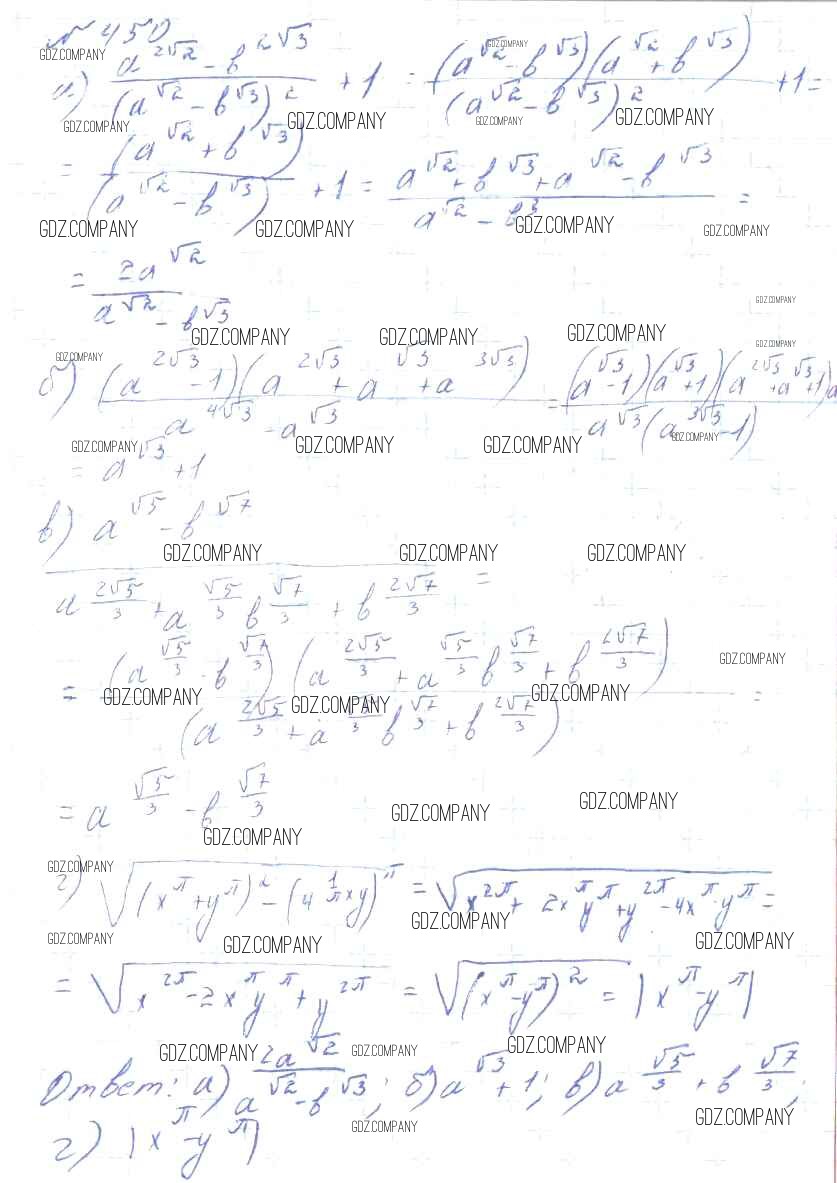 № 450
а) (a^{2√2} - b^{2√3})/(a^{√2} - b^{√3})^2 + 1 = (a^{√2} - b^{√3})(a^{√2} + b^{√3})/(a^{√2} - b^{√3})^2 + 1 =
= (a^{√2} + b^{√3})/(a^{√2} - b^{√3}) + 1 = (a^{√2} + b^{√3} + a^{√2} - b^{√3})/(a^{√2} - b^{3}) =
= 2a^{√2}/(a^{√2} - b^{√3})
б) (a^{2√3} - 1)(a^{2√3} + a^{√3} + a^{3√3})/(a^{4√3} - a^{√3}) = (a^{√3} - 1)(a^{√3} + 1)(a^{2√3} + a^{√3} + 1)a/(a^{√3}(a^{3√3} - 1))
= a^{√3} + 1
в) (a^{√5} - b^{√7})/(a^{2√5/3} + a^{√5/3} b^{√7/3} + b^{2√7/3}) =
= (a^{√5/3} - b^{√7/3})(a^{2√5/3} + a^{√5/3} b^{√7/3} + b^{2√7/3})/(a^{2√5/3} + a^{√5/3} b^{√7/3} + b^{2√7/3}) =
= a^{√5/3} - b^{√7/3}
г) √((x^π + y^π)^2 - (4^{1/π} xy)^π) = √(x^{2π} + 2x^π y^π + y^{2π} - 4x^π · y^π) =
= √(x^{2π} - 2x^π y^π + y^{2π}) = √((x^π - y^π)^2) = |x^π - y^π|
Ответ: а) 2a^{√2}/(a^{√2} - b^{√3}); б) a^{√3} + 1; в) a^{√5/3} + b^{√7/3};
г) |x^π - y^π|
GDZ.COMPANY